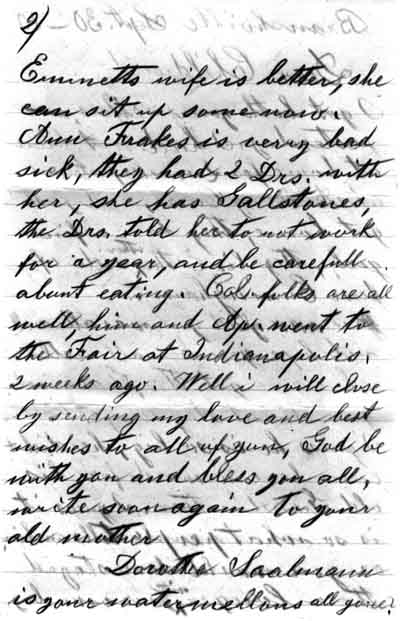 2)
Emmetts wife is better, she
can sit up some now.
Ann Frakes is verry bad
sick, they had 2 Drs. with
her, she has Gallstones,
the Drs. told her to not work
for a year, and be carefull
about eating. Cal. folks are all
well, him and Ap. went to
the Fair at Indianapolis,
2 weeks ago. Well i will close
by sending my love and best
wishes to all of you, God be
with you and bless you all,
write soon again to your
old mother
Dorothe Saalmann
is your watermellons all gone?